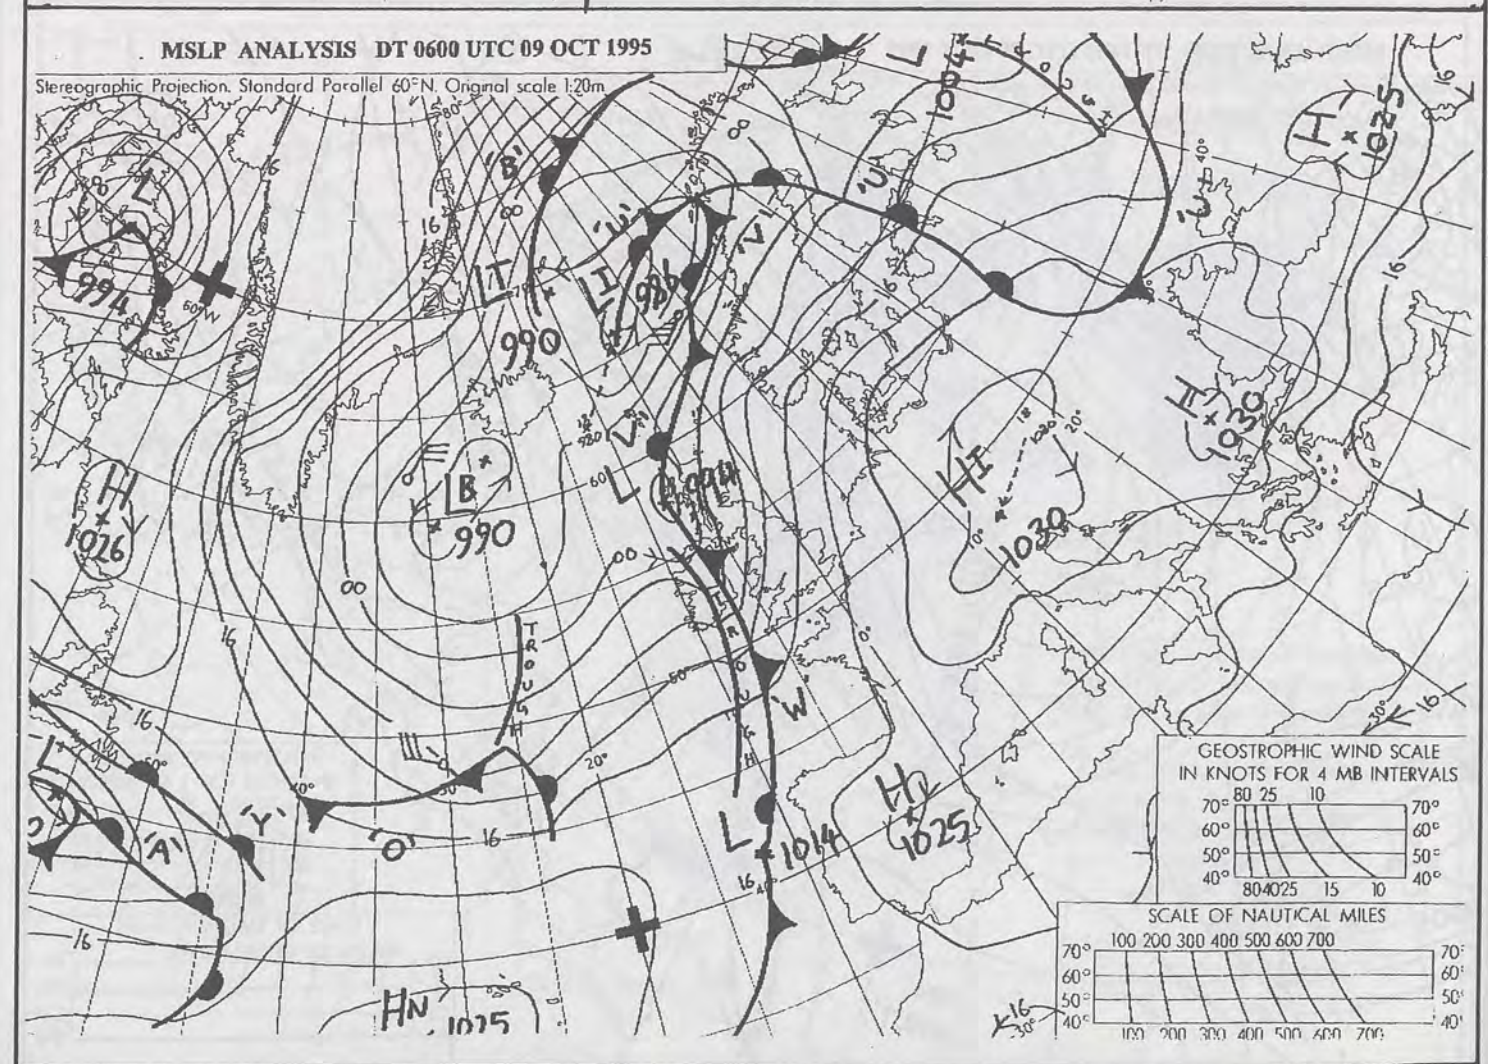 MSLP ANALYSIS DT 0600 UTC 09 OCT 1995
Stereographic Projection. Standard Parallel 60°N. Original scale 1:20m
80°
L
1004
H
1025
16
40°
'B'
16
16
L
994
60°W
00
00
'U'
'V'
LT
990
LI
986
16
H
1030
20°
HI
1030
10°
L
994
60°
LB
990
H
1026
00
00
16
16
TROUGH
TROUGH
50°
'W'
0°
20°
'Y'
'A'
'O'
16
L
L
1014
16 40°
H
1025
16
HN
1025
30°
16
GEOSTROPHIC WIND SCALE
IN KNOTS FOR 4 MB INTERVALS
80 25 10
70° 70°
60° 60°
50° 50°
40° 40°
80 40 25 15 10
SCALE OF NAUTICAL MILES
100 200 300 400 500 600 700
70° 70°
60° 60°
50° 50°
40° 40°
100 200 300 400 500 600 700
16
30°